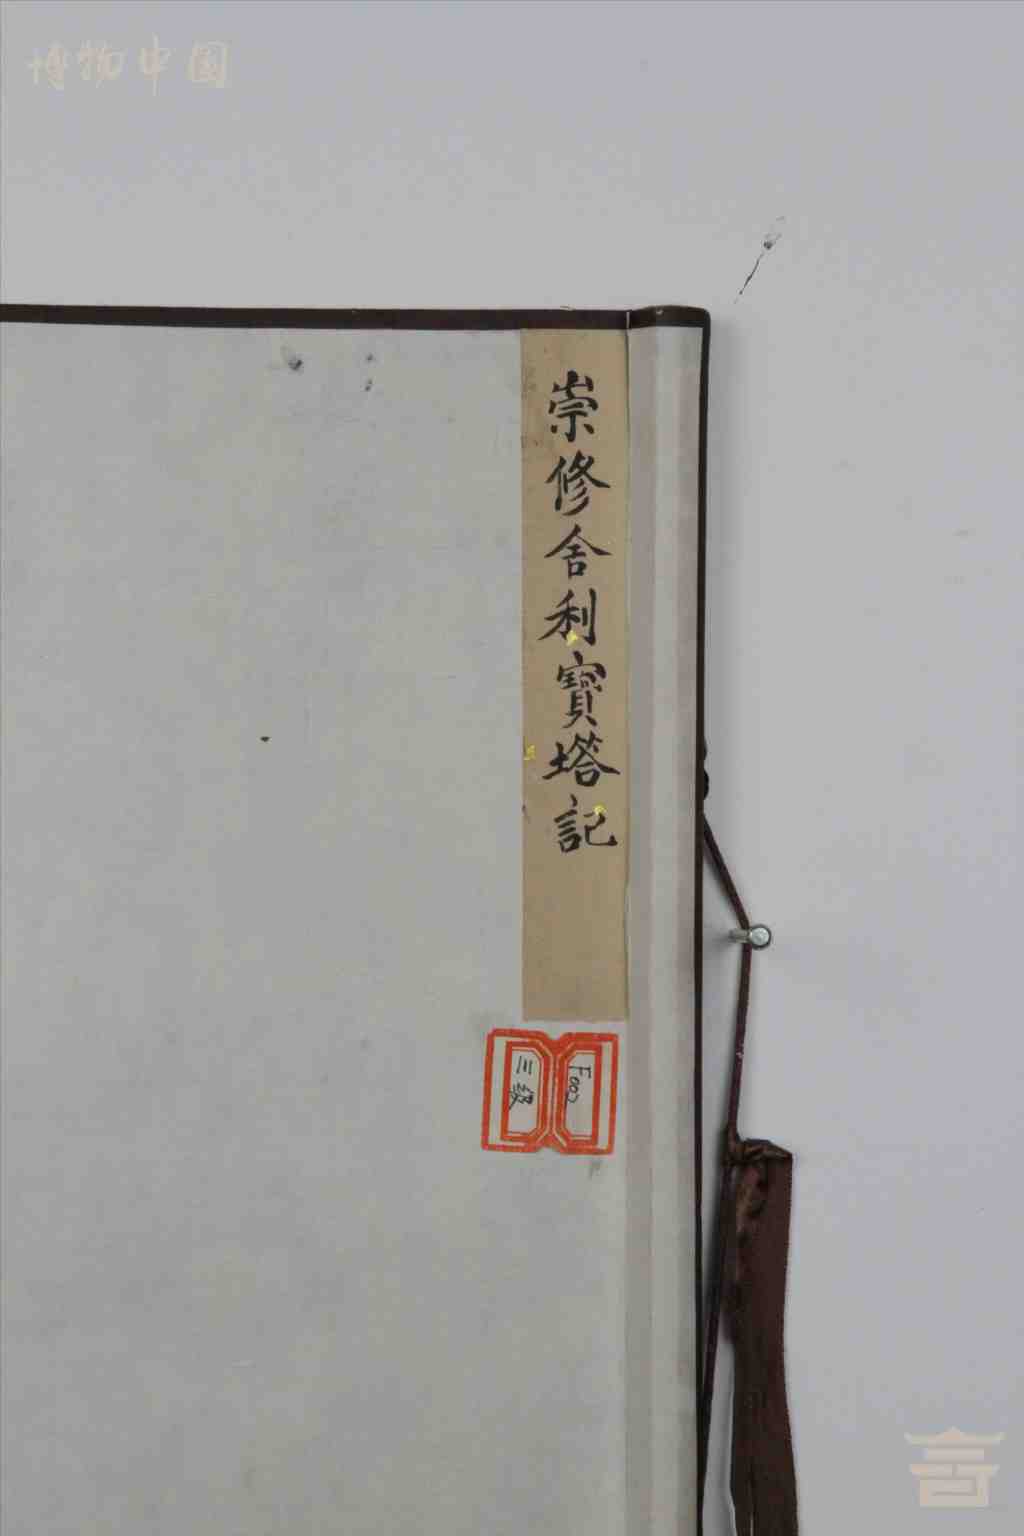 博物中国
崇修舍利寶塔記
F002
三级